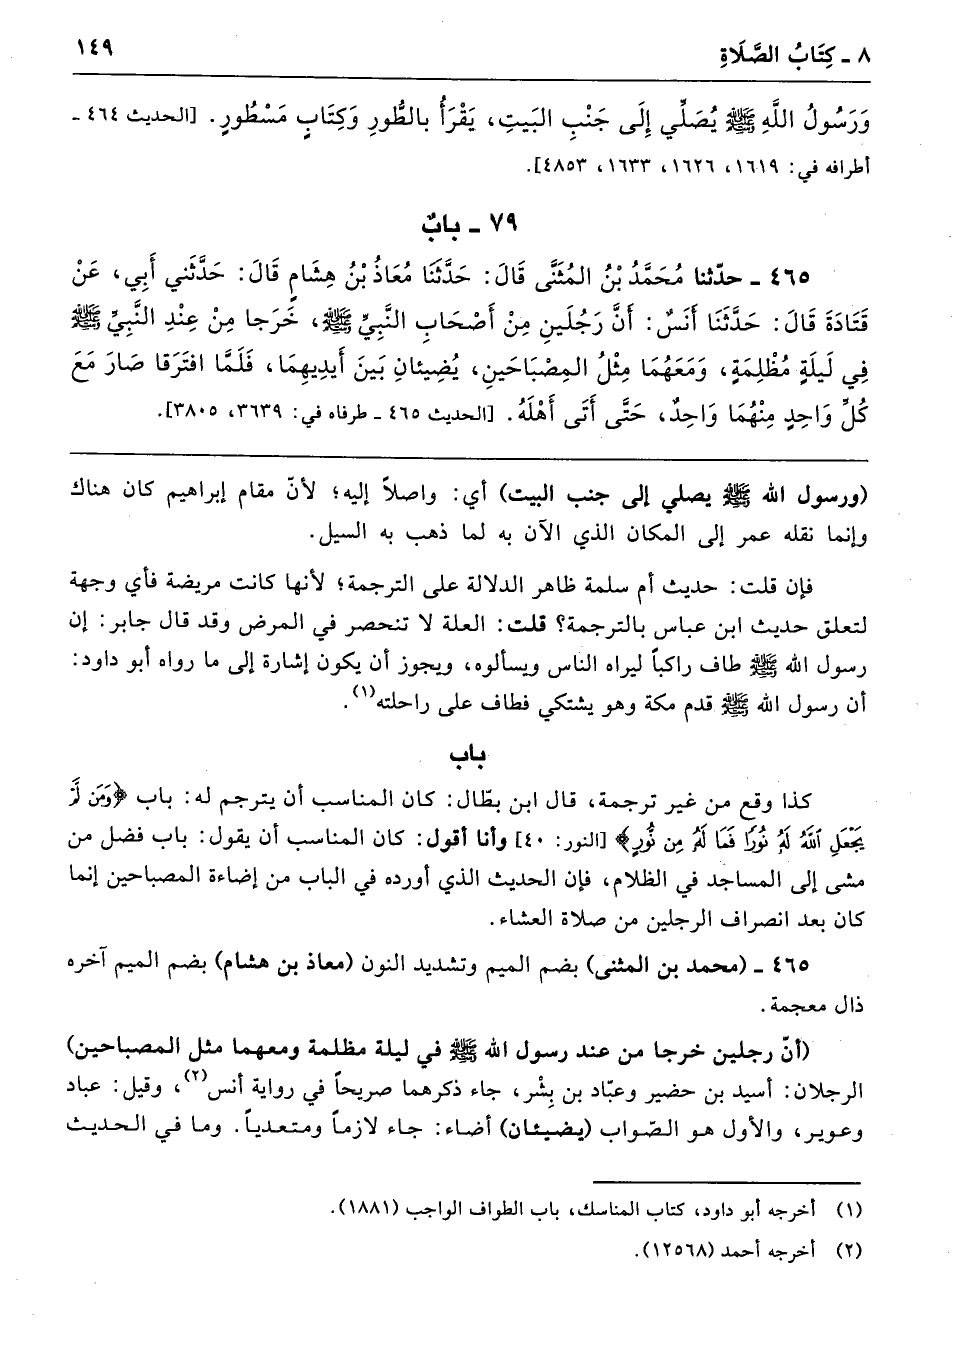 ٨ ـ كِتَابُ الصَّلَاةِ
١٤٩
وَرَسُولُ اللَّهِ ﷺ يُصَلِّي إِلَى جَنْبِ البَيتِ، يَقْرَأُ بالطُّورِ وَكِتَابٍ مَسْطُورٍ. [الحديث ٤٦٤ ـ
أطرافه في: ١٦١٩، ١٦٢٦، ١٦٣٣، ٤٨٥٣].
٧٩ ـ بابٌ
٤٦٥ ـ حدّثنا مُحَمَّدُ بْنُ المُثَنَّى قَالَ: حَدَّثَنَا مُعَاذُ بْنُ هِشَامٍ قَالَ: حَدَّثَني أَبِي، عَنْ
قَتَادَةَ قَالَ: حَدَّثَنَا أَنَسٌ: أَنَّ رَجُلَينِ مِنْ أَصْحَابِ النَّبِيِّ ﷺ، خَرَجا مِنْ عِنْدِ النَّبِيِّ ﷺ
فِي لَيلَةٍ مُظْلِمَةٍ، وَمَعَهُمَا مِثْلُ المِصْبَاحَينِ، يُضِيئانِ بَينَ أَيدِيهِمَا، فَلَمَّا افتَرَقا صَارَ مَعَ
كُلِّ وَاحِدٍ مِنْهُمَا وَاحِدٌ، حَتَّى أَتَى أَهْلَهُ. [الحديث ٤٦٥ ـ طرفاه في: ٣٦٣٩، ٣٨٠٥].
(ورسول الله ﷺ يصلي إلى جنب البيت) أي: واصلاً إليه؛ لأنّ مقام إبراهيم كان هناك
وإنما نقله عمر إلى المكان الذي الآن به لما ذهب به السيل.
فإن قلت: حديث أم سلمة ظاهر الدلالة على الترجمة؛ لأنها كانت مريضة فأي وجهة
لتعلق حديث ابن عباس بالترجمة؟ قلت: العلة لا تنحصر في المرض وقد قال جابر: إن
رسول الله ﷺ طاف راكباً ليراه الناس ويسألوه، ويجوز أن يكون إشارة إلى ما رواه أبو داود:
أن رسول الله ﷺ قدم مكة وهو يشتكي فطاف على راحلته(١).
باب
كذا وقع من غير ترجمة، قال ابن بطّال: كان المناسب أن يترجم له: باب ﴿وَمَن لَّمْ
يَجْعَلِ ٱللَّهُ لَهُ نُورًا فَمَا لَهُ مِن نُّورٍ﴾ [النور: ٤٠] وأنا أقول: كان المناسب أن يقول: باب فضل من
مشى إلى المساجد في الظلام، فإن الحديث الذي أورده في الباب من إضاءة المصباحين إنما
كان بعد انصراف الرجلين من صلاة العشاء.
٤٦٥ ـ (محمد بن المثنى) بضم الميم وتشديد النون (معاذ بن هشام) بضم الميم آخره
ذال معجمة.
(أنّ رجلين خرجا من عند رسول الله ﷺ في ليلة مظلمة ومعهما مثل المصباحين)
الرجلان: أسيد بن حضير وعبّاد بن بِشْر، جاء ذكرهما صريحاً في رواية أنس(٢)، وقيل: عباد
وعوير، والأول هو الصّواب (يضيئان) أضاء: جاء لازماً ومتعدياً. وما في الحديث
(١) أخرجه أبو داود، كتاب المناسك، باب الطواف الواجب (١٨٨١).
(٢) أخرجه أحمد (١٢٥٦٨).